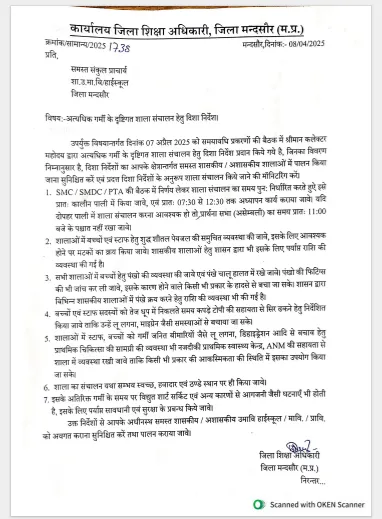 कार्यालय जिला शिक्षा अधिकारी, जिला मन्दसौर (म.प्र.)
क्रमांक/सामान्य/2025/1738 मन्दसौर,दिनांक:- 08/04/2025
प्रति,
समस्त संकुल प्राचार्य
शा.उ.मा.वि/हाईस्कूल
जिला मन्दसौर
विषय:-अत्यधिक गर्मी के दृष्टिगत शाला संचालन हेतु दिशा निर्देश।
उपर्युक्त विषयान्तर्गत दिनांक 07 अप्रेल 2025 को समयावधि प्रकरणों की बैठक में श्रीमान कलेक्टर
महोदय द्वारा अत्यधिक गर्मी के दृष्टिगत शाला संचालन हेतु दिशा निर्देश प्रदान किये गये है, जिनका विवरण
निम्नानुसार है, दिशा निर्देशों का आपके क्षेत्रान्तर्गत समस्त शासकीय / अशासकीय शालाओं में पालन किया
जाना सुनिश्चित करें एवं प्रदत्त दिशा निर्देशों के अनुरूप शाला संचालित किये जाने की मॉनिटरिंग करें।
1. SMC / SMDC / PTA की बैठक में निर्णय लेकर शाला संचालन का समय पुनः निर्धारित करते हुऐ इसे
प्रातः कालीन पाली में किया जावे, एवं प्रातः 07:30 से 12:30 तक अध्यापन कार्य कराया जावे। यदि
दोपहर पाली में शाला संचालन करना आवश्यक हो तो प्रार्थना सभा (असेम्बली) का समय प्रातः 11:00
बजे के पश्चात नहीं रखा जावे।
2. शालाओं में बच्चों एवं स्टाफ हेतु शुद्ध शीतल पेयजल की समुचित व्यवस्था की जावे, इसके लिए आवश्यक
होने पर मटकों का क्रय किया जावे। शासकीय शालाओं हेतु शासन द्वारा भी इसके लिए पर्याप्त राशि की
व्यवस्था की गई है।
3. सभी शालाओं में बच्चों हेतु पंखो की व्यवस्था की जावे एवं पंखे चालू हालत में रखे जावे। पंखो की फिटिंग्स
की भी जांच कर ली जावे, इसके कारण होने वाले किसी भी प्रकार के हादसे से बचा जा सके। शासन द्वारा
विभिन्न शासकीय शालाओं में पंखे क्रय करने हेतु राशि की व्यवस्था भी की गई है।
4. बच्चों एवं स्टाफ सदस्यों को तेज धूप में निकलते समय कपड़े टोपी की सहायता से सिर ढकने हेतु निर्देशित
किया जावे ताकि उन्हें लू लगना, माइग्रेन जैसी समस्याओं से बचाया जा सके।
5. शालाओं में स्टाफ, बच्चों को गर्मी जनित बीमारियों जैसे लू लगना, डिहाइड्रेशन आदि से बचाव हेतु
प्राथमिक चिकित्सा की सामग्री की व्यवस्था भी नजदीकी प्राथमिक स्वास्थ्य केन्द्र, ANM की सहायता से
शाला में व्यवस्था रखी जावे ताकि किसी भी प्रकार की आकस्मिकता की स्थिति में इसका उपयोग किया
जा सके।
6. शाला का संचालन यथा सम्भव स्वच्छ, हवादार एवं ठण्डे स्थान पर ही किया जावे।
7. इसके अतिरिक्त गर्मी के समय पर विद्युत शार्ट सर्किट एवं अन्य कारणों से आगजनी जैसी घटनाएँ भी होती
है, इसके लिए पर्याप्त सावधानी एवं सुरक्षा के प्रबन्ध किये जावे।
उक्त निर्देशों से आपके अधीनस्थ समस्त शासकीय / अशासकीय उमावि हाईस्कूल / मावि. / प्रावि.
को अवगत कराना सुनिश्चित करें तथा पालन कराया जावे।
जिला शिक्षा अधिकारी
जिला मन्दसौर (म.प्र.)
निरन्तर...
Scanned with OKEN Scanner